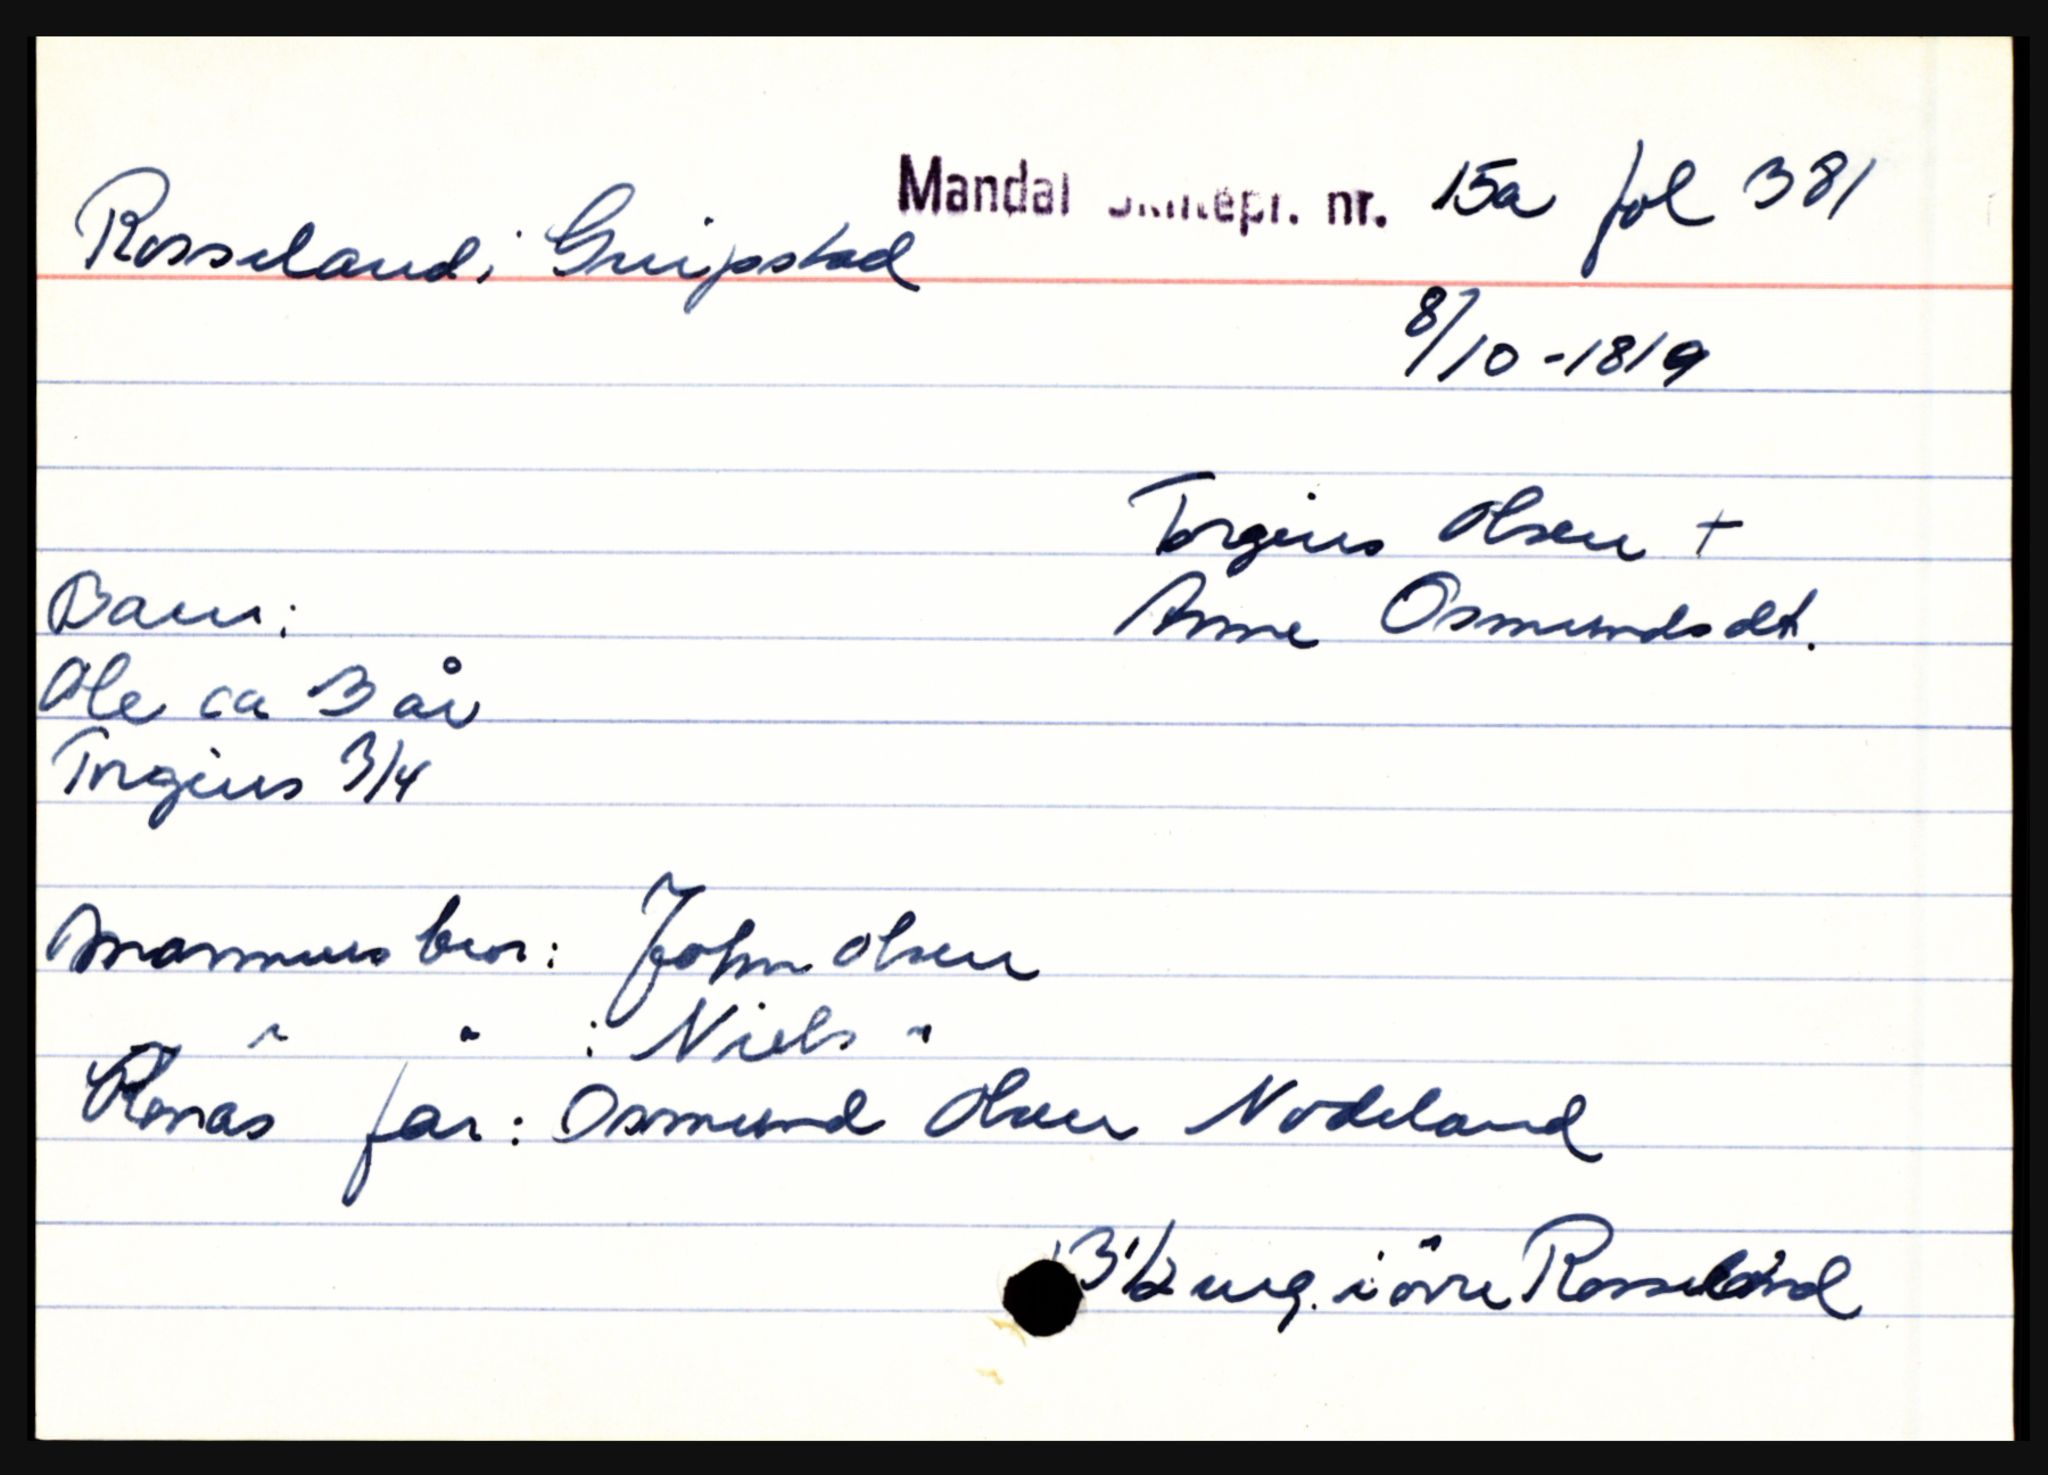 Mandal Skiftepr. nr. 15a fol 381
Rosseland, Greipstad
8/10 - 1819
Torgius Olsen +
Anne Osmundsdt.
Barn:
Ole ca 3 år
Torgius 3/4
Mannens bror: John Olsen
" " : Niels "
Konas far: Osmund Olsen Nodeland
3 1/2 eng. i övre Rosseland